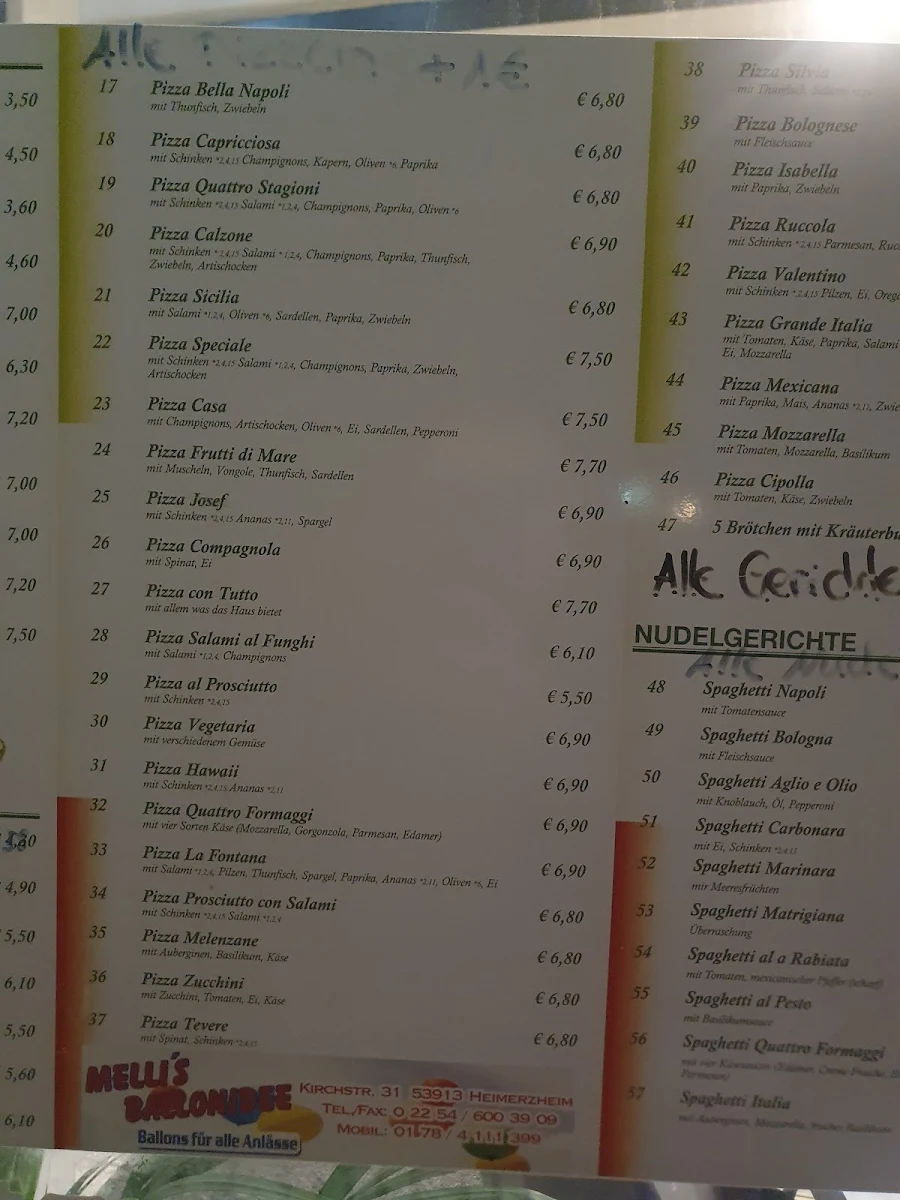 3,50
4,50
3,60
4,60
7,00
6,30
7,20
7,00
7,00
7,20
7,50
4,90
5,50
6,10
5,50
5,60
6,10
Alle Pizzen + 1€
17 Pizza Bella Napoli € 6,80
mit Thunfisch, Zwiebeln
18 Pizza Capricciosa € 6,80
mit Schinken *2,4,15 Champignons, Kapern, Oliven *6, Paprika
19 Pizza Quattro Stagioni € 6,80
mit Schinken *2,4,15 Salami *1,2,4, Champignons, Paprika, Oliven *6
20 Pizza Calzone € 6,90
mit Schinken *2,4,15 Salami *1,2,4, Champignons, Paprika, Thunfisch,
Zwiebeln, Artischocken
21 Pizza Sicilia € 6,80
mit Salami *1,2,4, Oliven *6, Sardellen, Paprika, Zwiebeln
22 Pizza Speciale € 7,50
mit Schinken *2,4,15 Salami *1,2,4, Champignons, Paprika, Zwiebeln,
Artischocken
23 Pizza Casa € 7,50
mit Champignons, Artischocken, Oliven *6, Ei, Sardellen, Pepperoni
24 Pizza Frutti di Mare € 7,70
mit Muscheln, Vongole, Thunfisch, Sardellen
25 Pizza Josef € 6,90
mit Schinken *2,4,15 Ananas *2,11, Spargel
26 Pizza Compagnola € 6,90
mit Spinat, Ei
27 Pizza con Tutto € 7,70
mit allem was das Haus bietet
28 Pizza Salami al Funghi € 6,10
mit Salami *1,2,4, Champignons
29 Pizza al Prosciutto € 5,50
mit Schinken *2,4,15
30 Pizza Vegetaria € 6,90
mit verschiedenem Gemüse
31 Pizza Hawaii € 6,90
mit Schinken *2,4,15 Ananas *2,11
32 Pizza Quattro Formaggi € 6,90
mit vier Sorten Käse (Mozzarella, Gorgonzola, Parmesan, Edamer)
33 Pizza La Fontana € 6,90
mit Salami *1,2,4, Pilzen, Thunfisch, Spargel, Paprika, Ananas *2,11, Oliven *6, Ei
34 Pizza Prosciutto con Salami € 6,80
mit Schinken *2,4,15 Salami *1,2,4
35 Pizza Melenzane € 6,80
mit Auberginen, Basilikum, Käse
36 Pizza Zucchini € 6,80
mit Zucchini, Tomaten, Ei, Käse
37 Pizza Tevere € 6,80
mit Spinat, Schinken *2,4,15
MELLI'S
BALLONIDEE
Ballons für alle Anlässe
KIRCHSTR. 31 53913 HEIMERZHEIM
TEL./FAX: 0 22 54 / 600 39 09
MOBIL: 0178 / 4 111 399
38 Pizza Silvia
mit Thunfisch,
39 Pizza Bolognese
mit Fleischsauce
40 Pizza Isabella
mit Paprika, Zwiebeln
41 Pizza Ruccola
mit Schinken *2,4,15 Parmesan, Ruc
42 Pizza Valentino
mit Schinken *2,4,15 Pilzen, Ei, Oreg
43 Pizza Grande Italia
mit Tomaten, Käse, Paprika, Salami
Ei, Mozzarella
44 Pizza Mexicana
mit Paprika, Mais, Ananas *2,11, Zwie
45 Pizza Mozzarella
mit Tomaten, Mozzarella, Basilikum
46 Pizza Cipolla
mit Tomaten, Käse, Zwiebeln
47 5 Brötchen mit Kräuterbu
Alle Gerichte
NUDELGERICHTE
Alle Nude
48 Spaghetti Napoli
mit Tomatensauce
49 Spaghetti Bologna
mit Fleischsauce
50 Spaghetti Aglio e Olio
mit Knoblauch, Öl, Pepperoni
51 Spaghetti Carbonara
mit Ei, Schinken *2,4,15
52 Spaghetti Marinara
mir Meeresfrüchten
53 Spaghetti Matrigiana
Überraschung
54 Spaghetti al a Rabiata
mit Tomaten, mexicanischer Pfeffer (scharf)
55 Spaghetti al Pesto
mit Basilikumsauce
56 Spaghetti Quattro Formaggi
Parmesan)
57 Spaghetti Italia
mit Auberginen, Mozzarella, frischer Basilikum